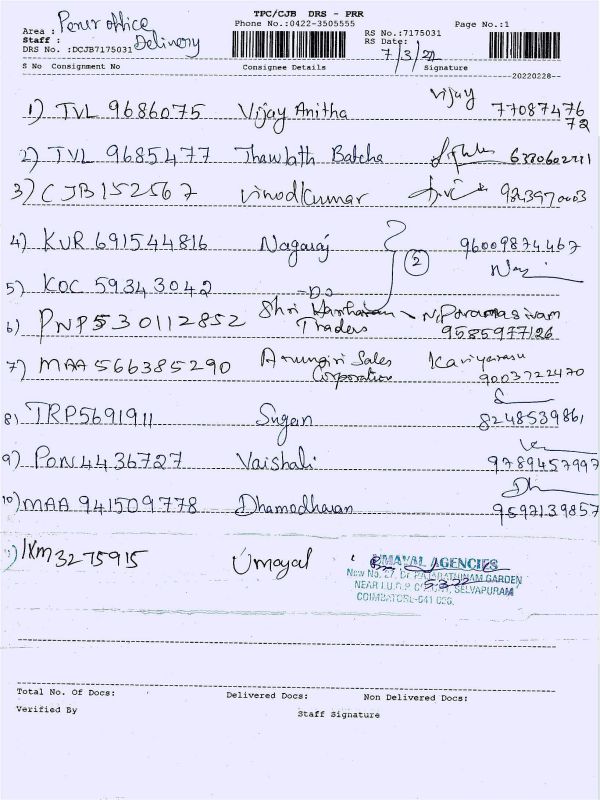 TPC/CJB DRS - PRR
Phone No.:0422-3505555 Page No.:1
Area : Perur office
Staff : Delivery
DRS No. :DCJB7175031
RS No.:7175031
RS Date: 7/3/22
S No Consignment No Consignee Details Signature
20220228--
1) TVL 9686075 Vijay Anitha Vijay 77087476
72
2) TVL 9685477 Thawlath Batcha
3) CJB 152567 Vinodkumar
4) KUR 691544816 Nagaraj 96009874467
5) KOC 59343042 -Do- 2
6) PNP530112852 Shri Traders N. Paramasivam
9585977126
7) MAA 566385290 Arungiri Sales Kaviyarasu
Corporation 9003722470
8) TRP5691911 Sugan 8248539861
9) PON4436727 Vaishali 9789457997
10) MAA 941509778 Dhamodharan 9597139857
11) IXM3275915 Umayal
UMAYAL AGENCIES
New No. 27, Dr RAJARATHINAM GARDEN
SELVAPURAM
COIMBATORE-641 026.
Total No. Of Docs: Delivered Docs: Non Delivered Docs:
Verified By Staff Signature